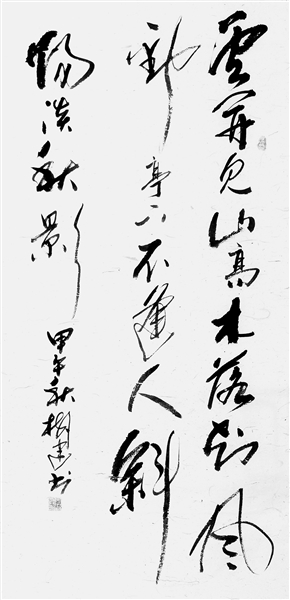 雲開見山高木落知風
勁亭下不逢人斜
陽淡秋影
甲午秋樹建書